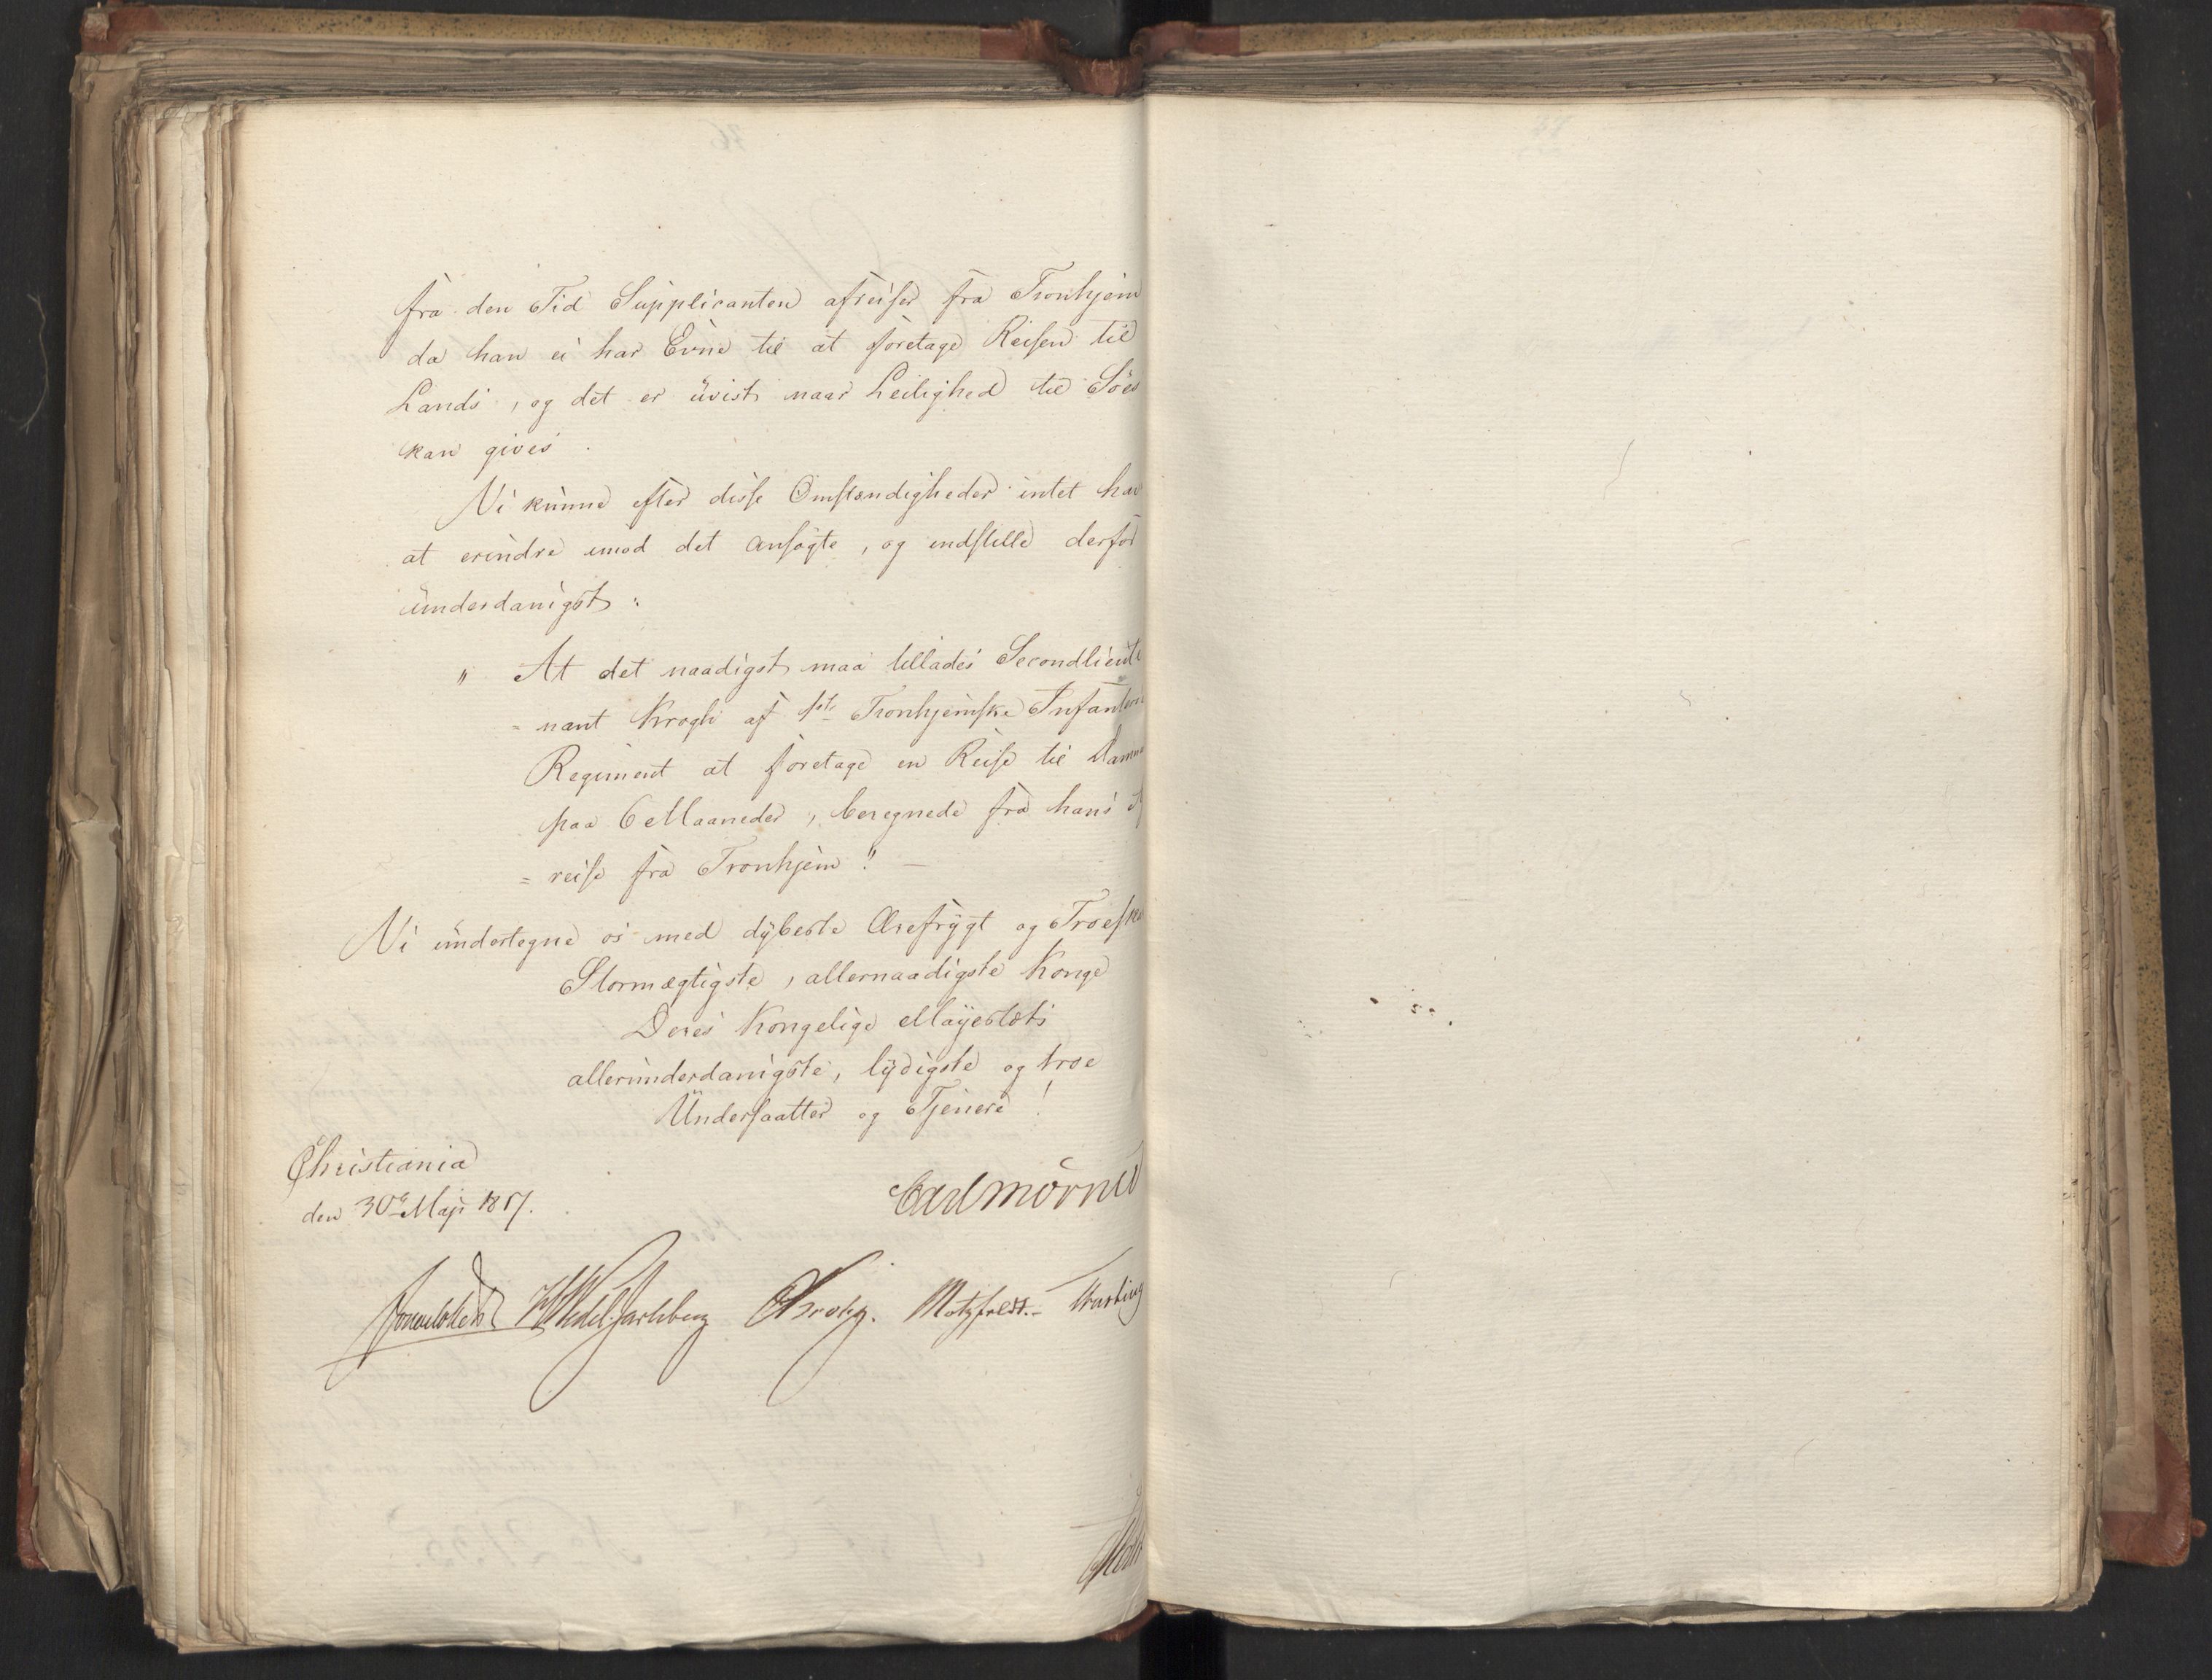 fra den Tid Supplicanten afreiser fra Tronhjem
da han ei har Evne til at foretage Reisen til
Lands, og det er uvist naar Leilighed til Søes
kan gives.
Vi kunne efter disse Omstændigheder intet hav
at erindre imod det ansøgte, og indstille derfor
underdanigst:
" At det naadigst maa tillades Secondlieute
= nant Krogh af 1ste Tronhjemske Infanterie
Regiment at foretage en Reise til Danm
paa 6 Maaneder, beregnede fra hans Af
= reise fra Tronhjem". —
Vi undertegne os med dybeste Ærefrygt og Troeska
Stormægtigste, allernaadigste Konge
Deres Kongelige Mayestæts
allerunderdanigste, lydigste og troe
Undersaatter og Tjenere!
Christiania
den 30te Maji 1817.
Carl Mörner
Sommerhielm HWedel Jarlsberg Krohg. Motzfeldt. Hwasling